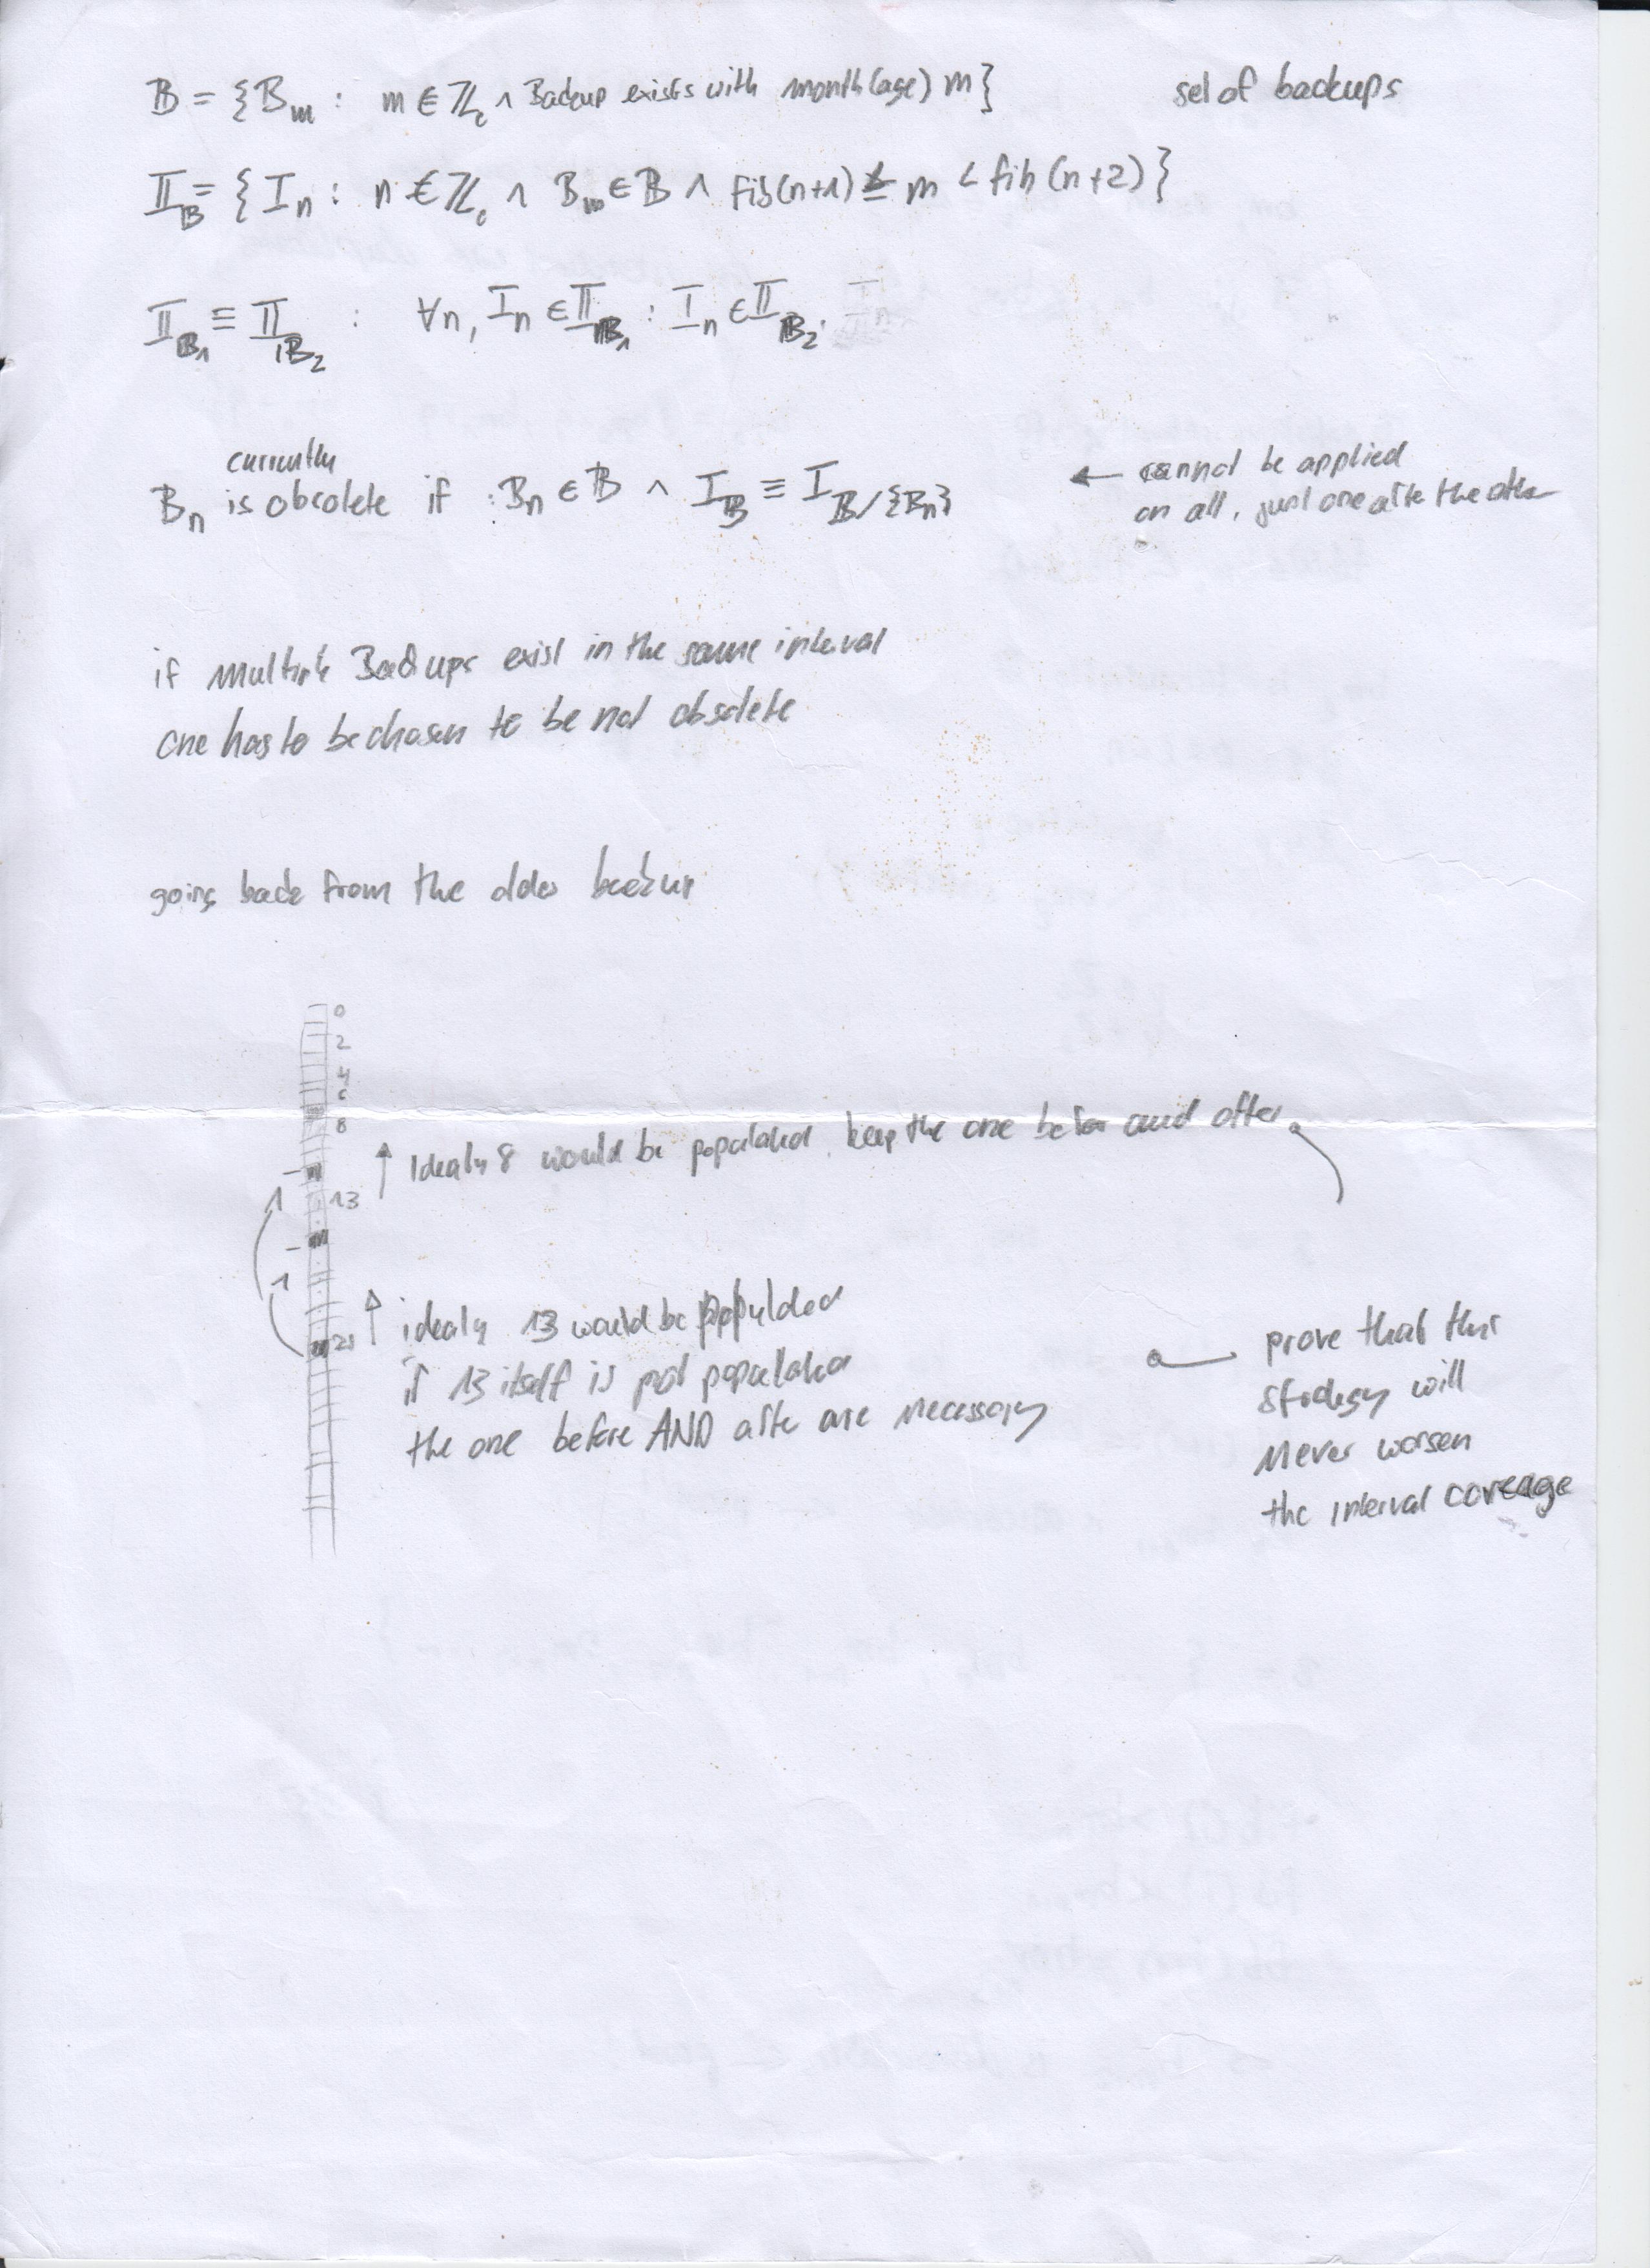 𝔹 = {B_m : m ∈ ℤ_0 ∧ Backup exists with month(age) m}
set of backups
𝕀_𝔹 = { I_n : n ∈ ℤ_0 ∧ B_m ∈ 𝔹 ∧ fib(n+1) ≤ m < fib(n+2)}
𝕀_𝔹1 ≡ 𝕀_𝔹2 : ∀n, I_n ∈ 𝕀_𝔹1 : I_n ∈ 𝕀_𝔹2
currently
B_n is obsolete if : B_n ∈ 𝔹 ∧ I_𝔹 ≡ I_𝔹/{B_n}
← cannot be applied
on all, just one after the other
if multiple Backups exist in the same interval
one has to be chosen to be not obsolete
going back from the older backup
0
2
4
6
8
↑ Idealy 8 would be populated, keep the one before and after
13
1
1
21
↑ idealy 13 would be populated
if 13 itself is not populated
the one before AND after are necessary
prove that this
strategy will
never worsen
the interval coverage